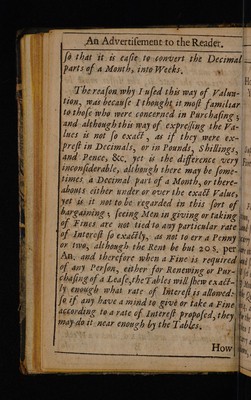 An Advertiſement to the Reader.
ſo that it is eaſie to convert the Decimal
parts of a Month, into Weeks.
The reaſon why I uſed this way of Valua-
tion, was becauſe I thought it moſt familiar
to thoſe who were concerned in Purchaſing;
and although this way of expreſſing the Va-
lues is not ſo exact, as if they were ex-
preſt in Decimals, or in Pounds, Shillings,
and Pence, &c. yet is the difference very
inconſiderable, although there may be ſome-
times a Decimal part of a Month, or there-
abouts either under or over the exact Value,
yet is it not to be regarded in this ſort of
bargaining; ſeeing Men in giving or taking
of Fines are not tied to any particular rate
of Intereſt ſo exactly, as not to err a Penny
or two, although the Rent be but 20 s. per
An. and therefore when a Fine is required
of any Perſon, either for Renewing or Pur-
chaſing of a Leaſe, the Tables will ſhew exact-
ly enough what rate of Intereſt is allowed:
ſo if any have a mind to give or take a Fine
according to a rate of Intereſt propoſed, they
may do it near enough by the Tables.
How